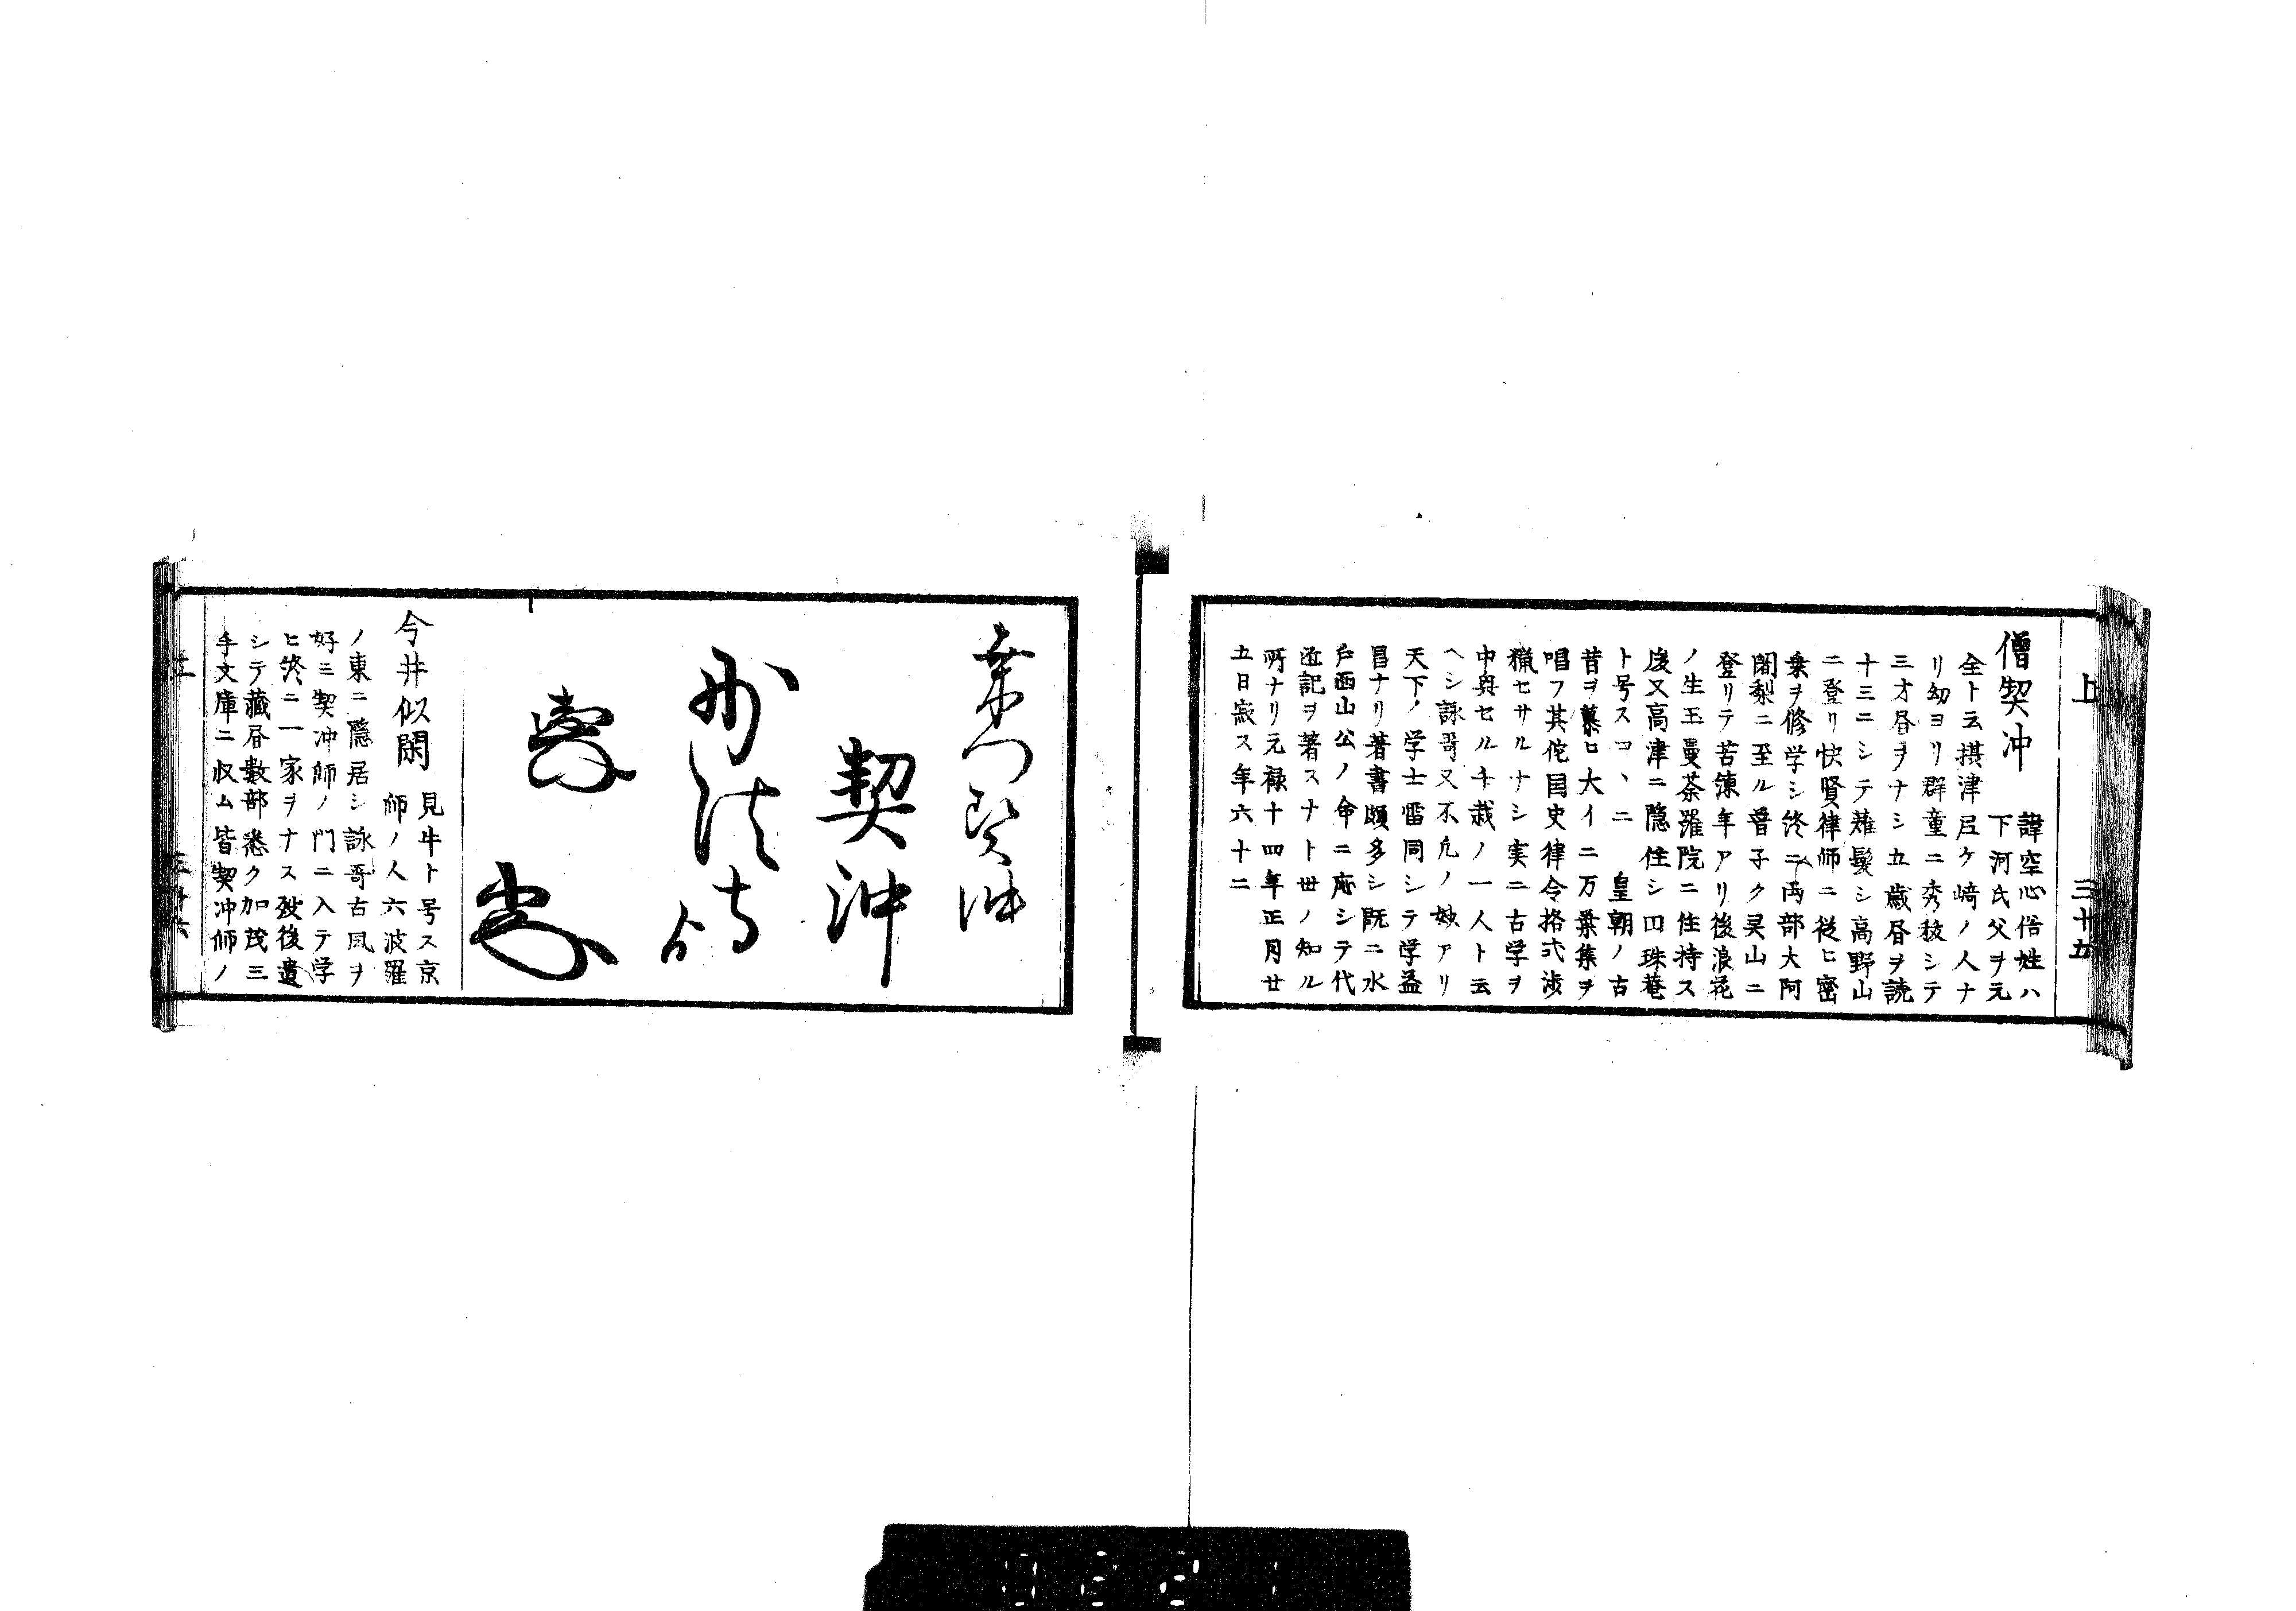 上
三十五
僧契冲
諱空心俗姓ハ
下河氏父ヲ元
全ト云摂津尼ケ﨑ノ人ナ
リ幼ヨリ群童ニ秀抜シテ
三才昏ヲナシ五歳昏ヲ読
十三ニシテ薙髪シ高野山
ニ登リ快賢律師ニ従ヒ密
乗ヲ修学シ終ニ両部大阿
闍梨ニ至ル曽子ク㚑山ニ
登リテ苦練年アリ後浪花
ノ生玉曼荼羅院ニ住持ス
後又高津ニ隠住シ円珠菴
ト号スコヽニ 皇朝ノ古
昔ヲ慕ヒ大イニ万葉集ヲ
唱フ其佗国史律令格式渉
猟セサルナシ実ニ古学ヲ
中興セル千載ノ一人ト云
ヘシ詠哥又不凡ノ妙アリ
天下ノ学士雷同シテ学益
昌ナリ著書頗多シ既ニ水
戸西山公ノ命ニ応シテ代
匠記ヲ著スナト世ノ知ル
所ナリ元禄十四年正月廿
五日寂ス年六十二
契冲
契沖
今井似閑
見牛ト号ス京
師ノ人六波羅
ノ東ニ隠居シ詠哥古風ヲ
好ミ契冲師ノ門ニ入テ学
ヒ終ニ一家ヲナス歿後遺
シテ蔵昏数部悉ク加茂三
手文庫ニ収ム皆契冲師ノ